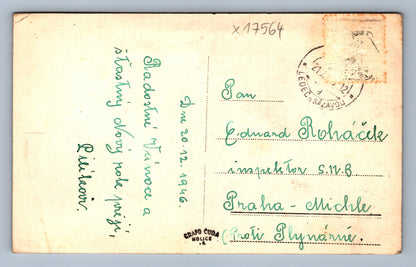 x17564
Dne 20.12.1946.
Radostné Vánoce a
šťastný Nový rok přejí,
Pan
Eduard Roháček
inspektor S.N.B
Praha - Michle
(Proti Plynárně.
GRAFO ČUDA
HOLICE